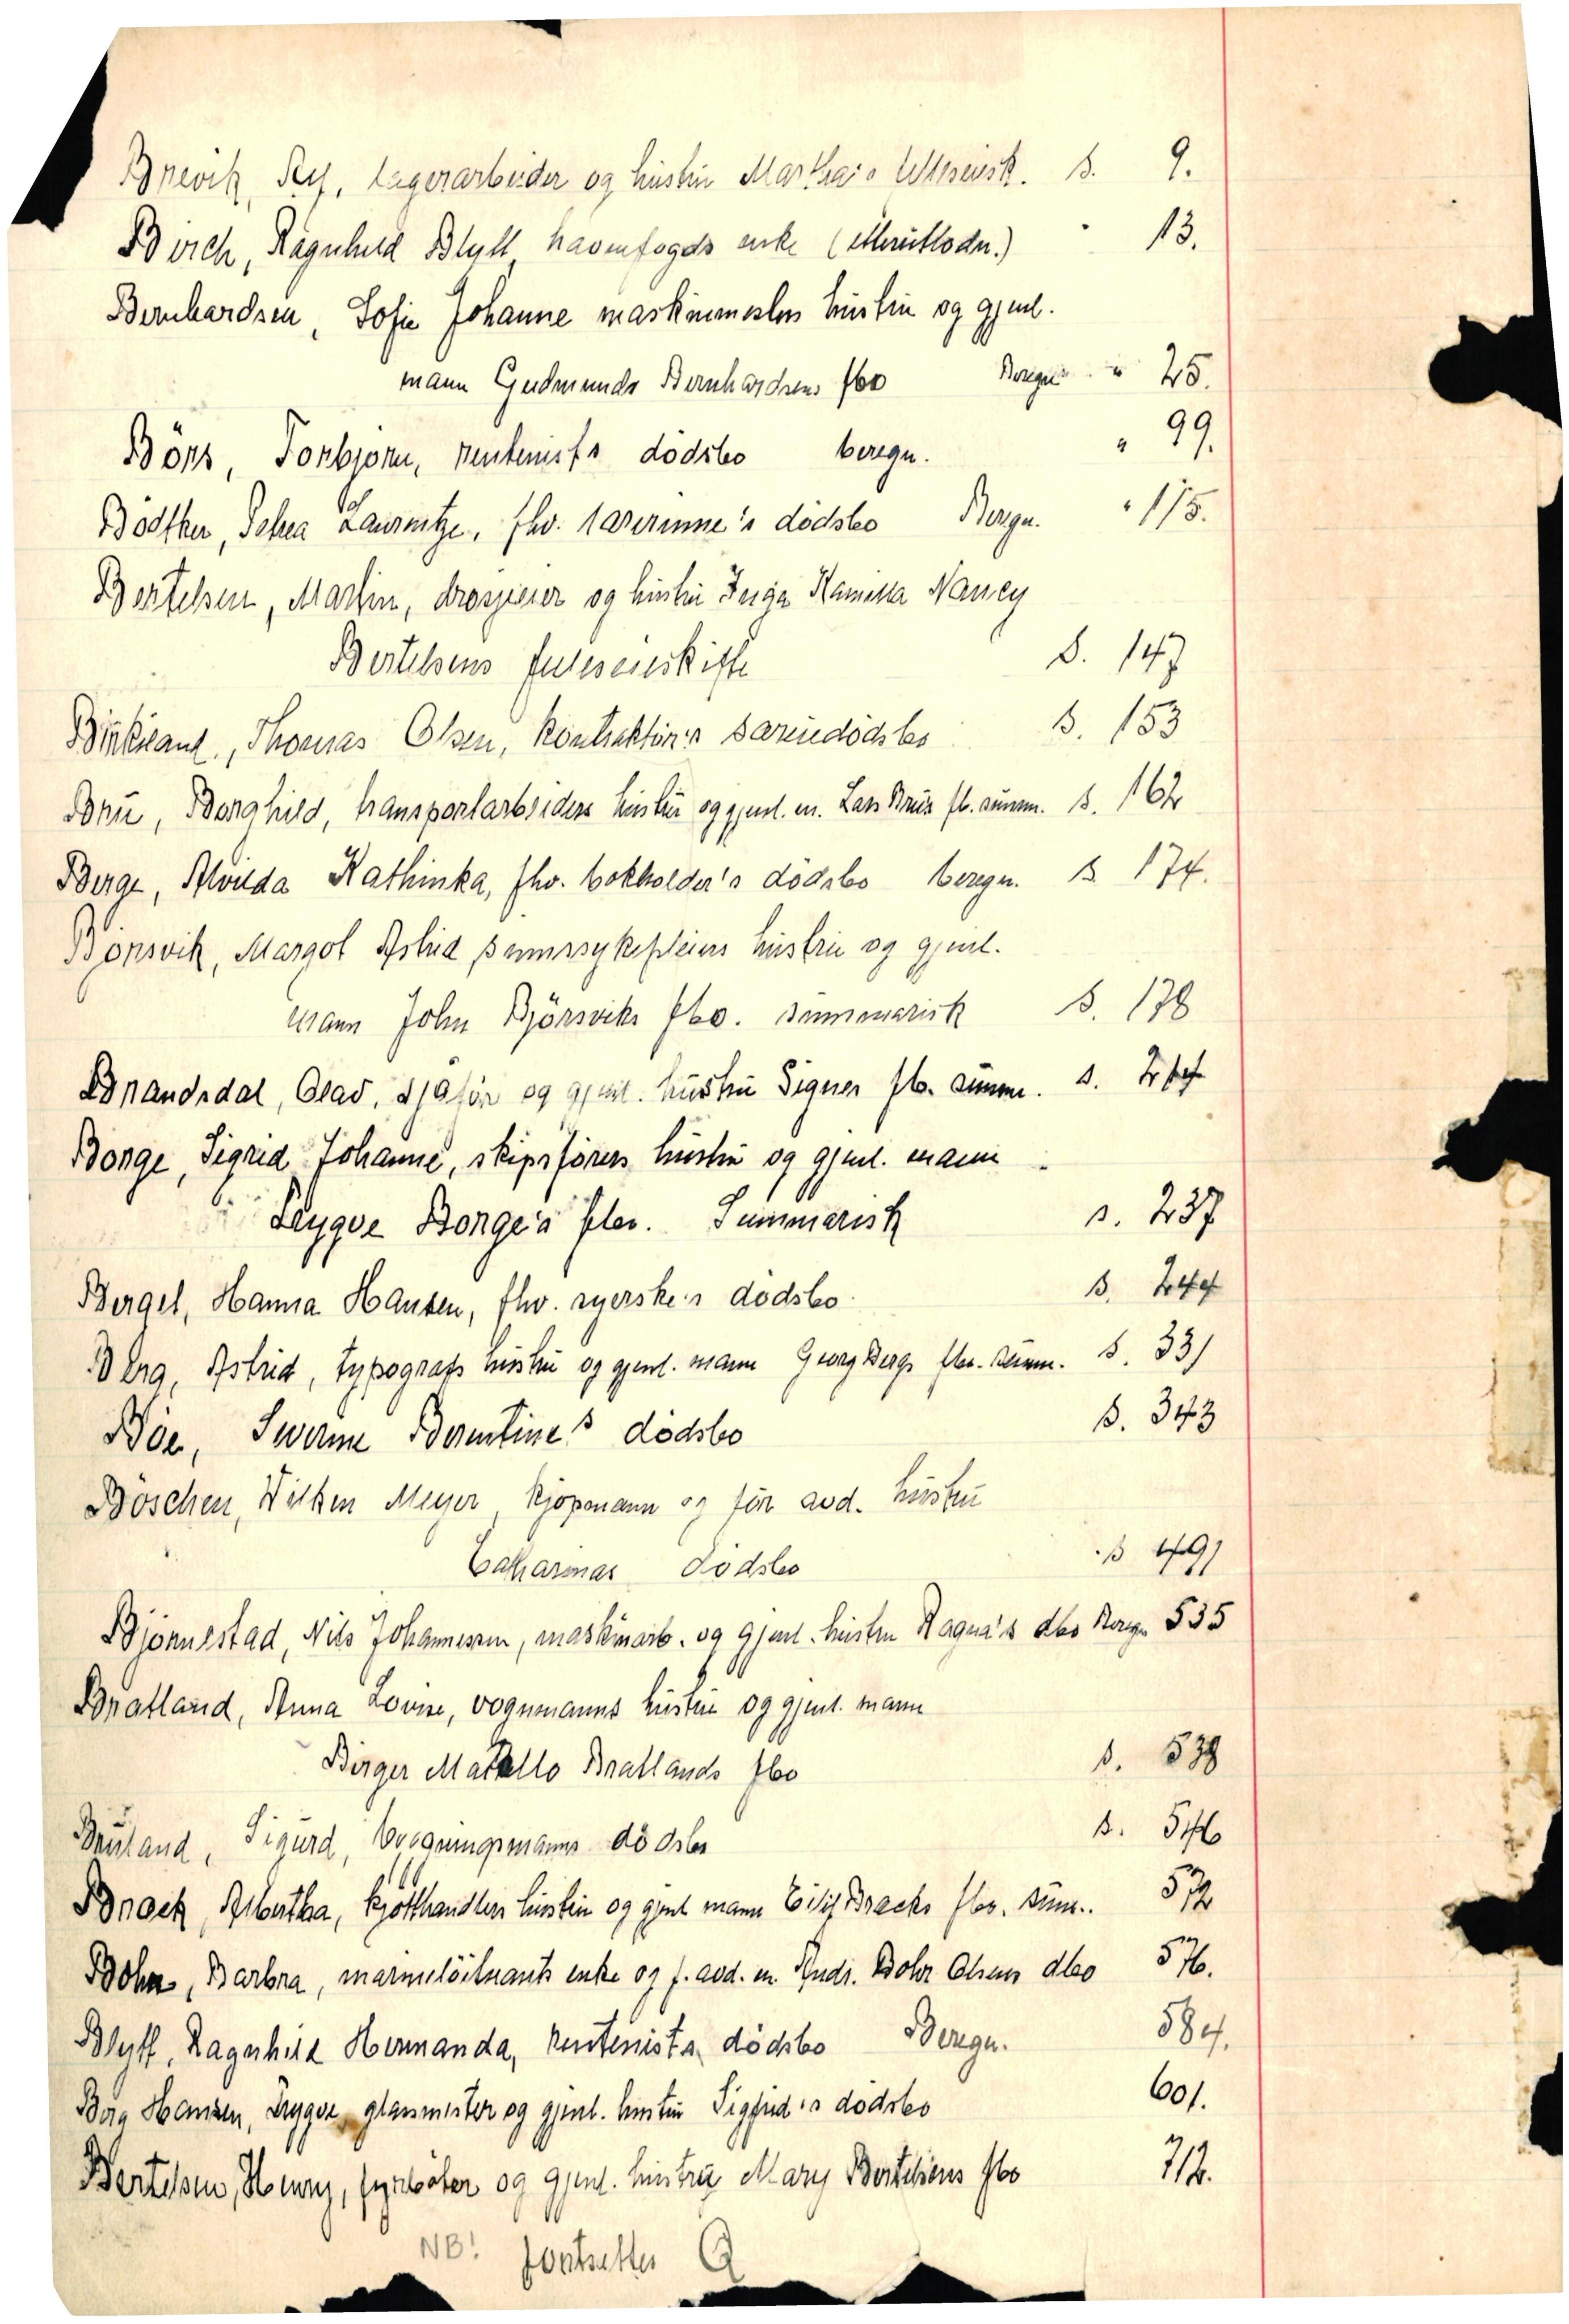 Brevik, lagerarbeider og hustru Martha's s. 9.
Birch, Ragnhild Blytt, havnefogds enke " 13.
Bernhardsen, Sofie Johanne maskinmesters hustru og gjenl.
mann Gudmunds Bernhardsens fbo Beregn. " 25.
Börs, Torbjörn, rentenists dödsbo beregn. " 99.
Bödtker, Laurentze, fhv. lærerinne's dödsbo Beregn. " 115.
Bertelsen, Martin, drosjeeier og hustru Inga Kamilla Nancy
Bertelsens felleseieskifte S. 147
Birkeland, Thomas Olsen, kontraktör's særeiedödsbo s. 153
Bru, Borghild, transportarbeiders hustru og gjenl. m. Lars Brus fb. summ. s. 162
Berge, Alvilda Kathinka, fhv. bokholder's dödsbo beregn. s 174.
Björsvik, Margot Astrid sinnssykepleiers hustru og gjenl.
mann John Björsviks fbo. summarisk s. 178
Brandsdal, Olav, sjåför og gjenl. hustru Signes fb. summ. s.
Borge, Sigrid Johanne, skipsförers hustru og gjenl. mann
Trygve Borge's fbo. Summarisk s. 237
Berget, Hanna Hansen, fhv. syerske's dödsbo s. 244
Berg, Astrid, typografs hustru og gjenl. mann Georg Bergs fbo. summ. s. 331
Böe, Berntine's dödsbo s. 343
Böschen, Wilken Meyer, kjöpmann og för avd. hustru
Catharinas dödsbo s 491
Björnestad, Nils Johannessen, maskinarb. og gjenl. hustru Ragna's dbo Beregn 535
Bratland, Anna Lovise, vognmanns hustru og gjenl. mann
Birger Bratlands fbo s. 538
Bruland, Sigurd, bergningsmanns dödsbo s. 546
Brack, Albertha, kjötthandlers hustru og gjenl mann Eilif Bracks fbo. summ. 572
Bohr, Barbra, marinelöitnants enke og f. avd. m. Andr. Bohr Olsens dbo 576.
Blytt, Ragnhild Hermanda, rentenists dödsbo Beregn. 584.
Berg Hansen, Trygve, glassmester og gjenl. hustru Sigfrid's dödsbo 601.
Bertelsen, Henry, fyrböter og gjenl. hustru Mary Bertelsens fbo 712.
NB! fortsetter Q